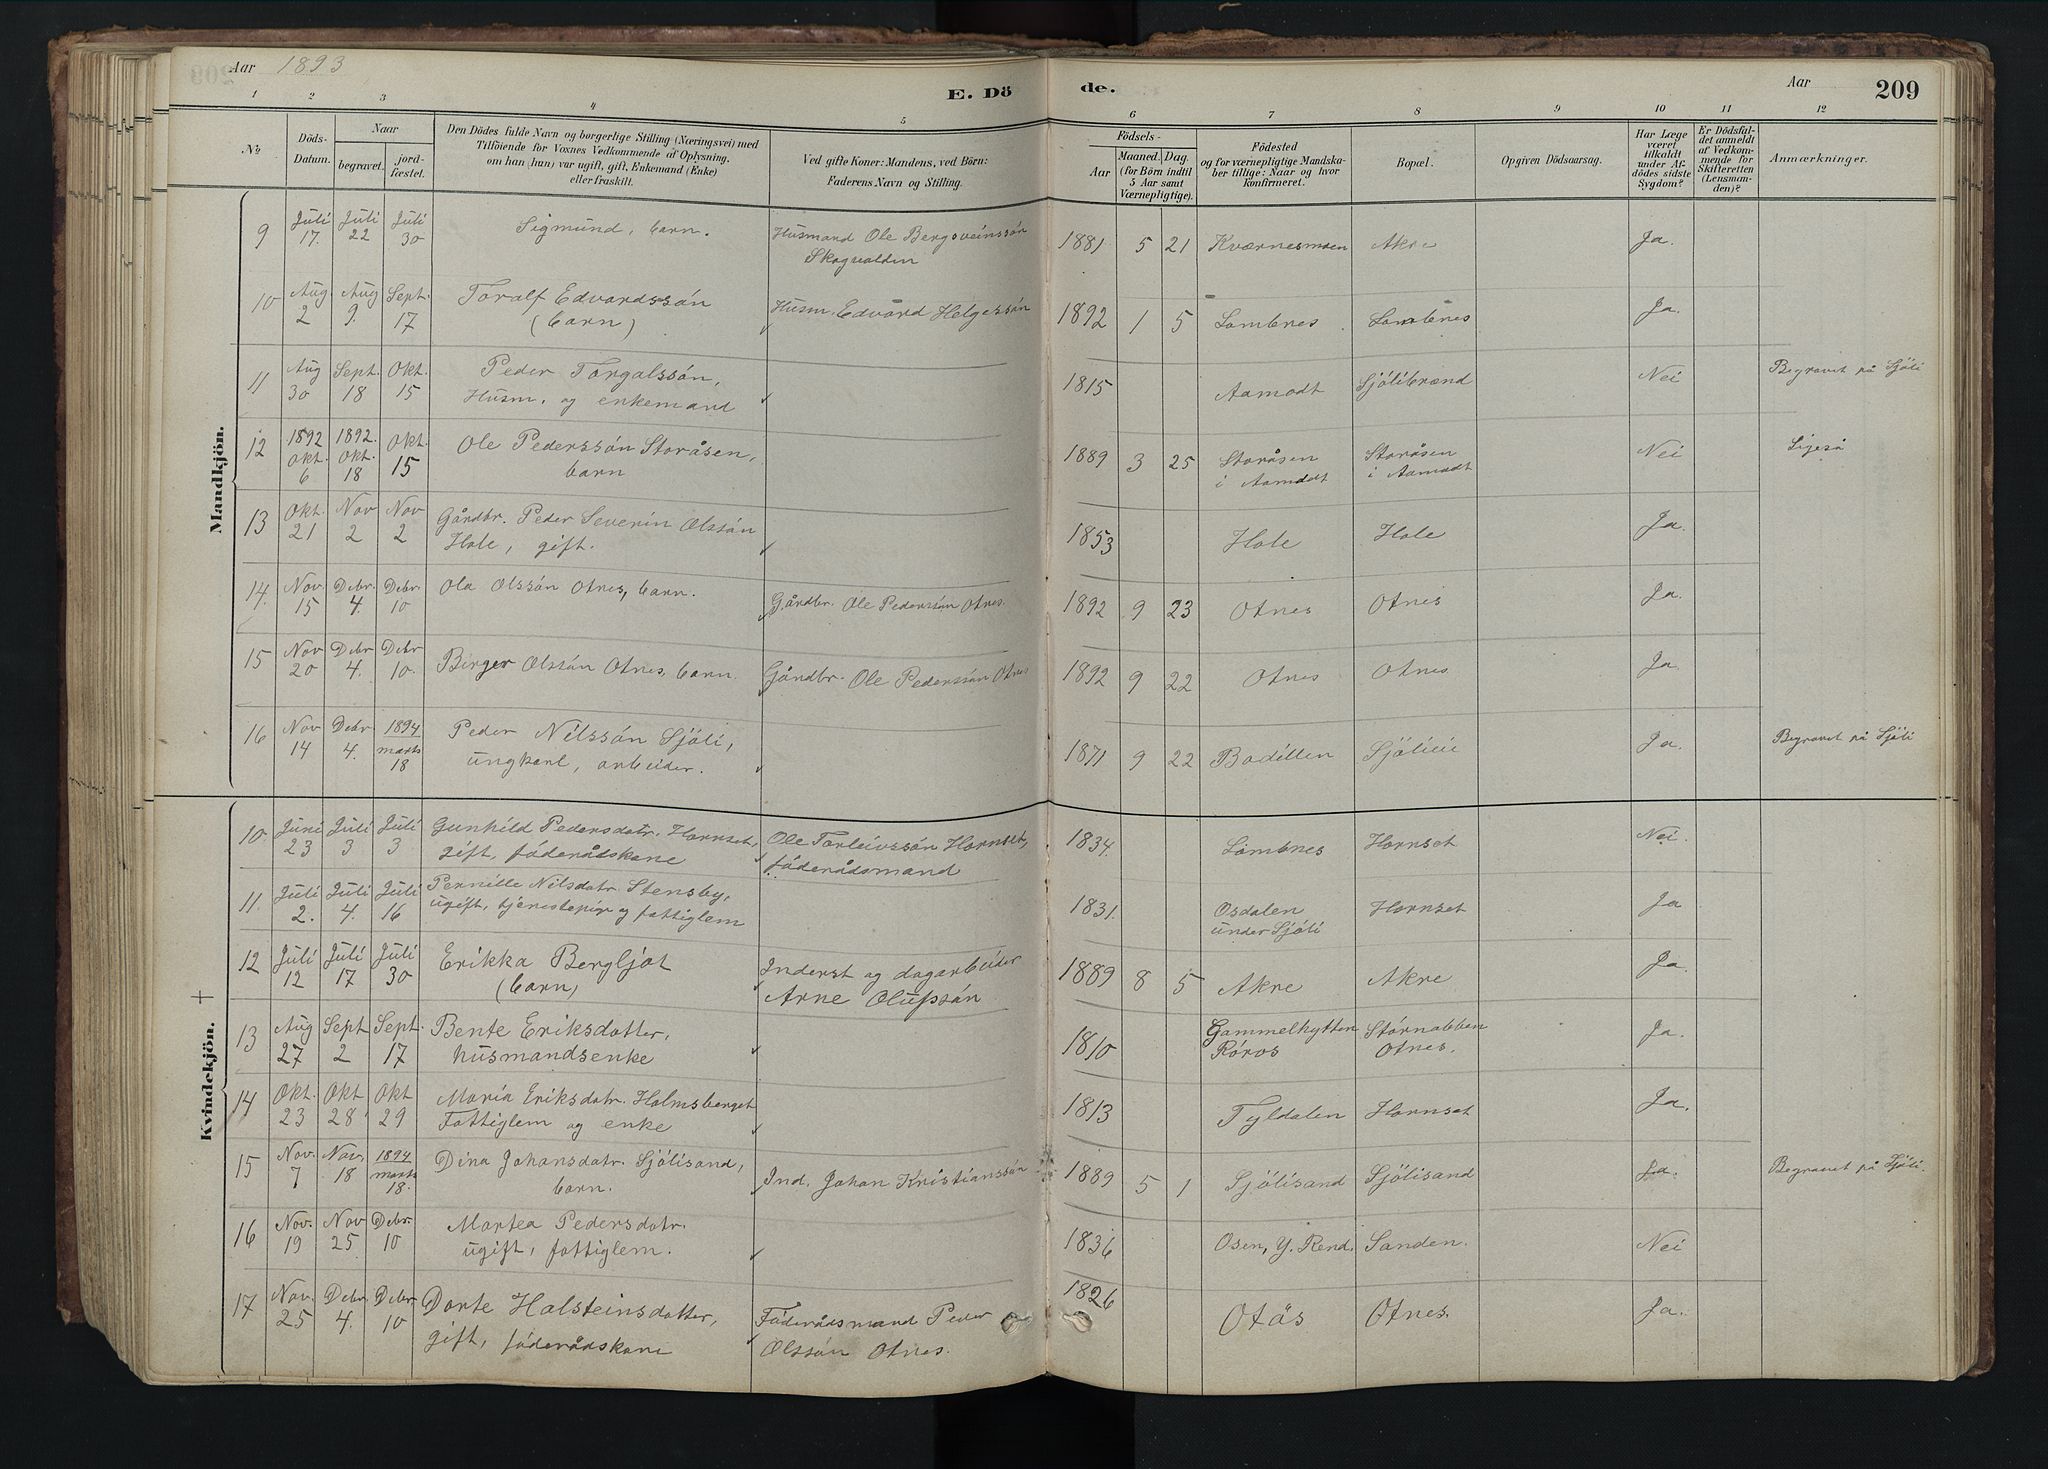 Aar 1893
E. Döde.
Aar
209
1 2 3 4 5 6 7 8 9 10 11 12
No
Döds-Datum.
Naar
begravet.
jord-fæstet.
Den Dödes fulde Navn og borgerlige Stilling (Næringsvei) med
Tilföiende for Voxnes Vedkommende af Oplysning,
om han (hun) var ugift, gift, Enkemand (Enke)
eller fraskilt.
Ved gifte Koner: Mandens, ved Börn:
Faderens Navn og Stilling.
Födsels-
Aar
Maaned. Dag.
(for Börn indtil
5 Aar samt
Værnepligtige).
Födested
og for værnepligtige Mandska-
ber tillige: Naar og hvor
konfirmeret.
Bopæl.
Opgiven Dödsaarsag.
Har Læge
været
tilkaldt
under Af-
dödes sidste
Sygdom?
Er Dödsfal-
det anmeldt
af Vedkom-
mende for
Skifteretten
(Lensman-
den)?
Anmærkninger.
Mandkjön.
9 Juli 17. Juli 22 Juli 30 Sigmund, barn. Husmand Ole Bergsveinssön Skogvolden 1881 5 21 Kværnesmoen Akre Ja.
10 Aug 2 Aug 9. Sept. 17 Toralf Edvardssön (barn) Husm. Edvard Helgessön 1892 1 5 Lombnes Lombnes Ja.
11 Aug 30 Sept. 18 Okt. 15 Peder Torgalssön, Husm. og enkemand 1815 Aamodt Sjölibrænd Nei Begravet på Sjöli
12 1892 Okt. 6 1892. Okt. 18 Okt. 15 Ole Pederssön Storåsen, barn 1889 3 25 Storåsen i Aamodt Storåsen i Aamodt Nei Ligeså
13 Okt. 21 Nov 2 Nov 2 Gårdbr. Peder Severin Olssön Hole, gift. 1853 Hole Hole Ja.
14. Nov 15 Debr. 4. Debr. 10 Ola Olssön Otnes, barn. Gårdbr. Ole Pederssön Otnes. 1892 9 23 Otnes Otnes Ja.
15 Nov 20 Debr 4. Debr 10. Birger Olssön Otnes, barn. Gårdbr. Ole Pederssön Otnes 1892 9 22 Otnes Otnes Ja.
16 Nov 14 Debr 4. 1894 marts 18 Peder Nilssön Sjöli, ungkarl, arbeider. 1871 9 22 Sjöliеie Ja. Begravet på Sjöli
Kvindekjön.
10 Juni 23 Juli 3 Juli 3 Gunhild Pedersdatr. Hornset, gift, föderådskone Ole Torleivssön Hornset, föderådsmand 1834. Lombnes Hornset Nei.
11. Juli 2. Juli 4. Juli 16 Pernille Nilsdatr. Stensby, ugift, tjenestepige og fattiglem 1831. Osdalen under Sjöli Hornset Ja
12 Juli 12 Juli 17 Juli 30 Erikka Bergljot (barn) Inderst og dagarbeider Arne Olufssön 1889 8 5 Akre Akre Ja.
13 Aug 27 Sept 2 Sept. 17 Bente Eriksdatter, husmandsenke 1810 Gammelhytten Röros Störnabben Otnes. Ja.
14 Okt. 23 Okt 28 Okt 29 Maria Eriksdatr. Holmsberget Fattiglem og enke 1813 Tyldalen Hornset Ja.
15 Nov. 7 Nov. 18 1894 marts 18. Dina Johansdatr. Sjölisand, barn. Ind. Johan Kristianssön 1889 5 1 Sjölisand Sjölisand Ja. Begravet på Sjöli.
16 Nov. 19 Nov 25 Debr. 10 Martea Pedersdatr. ugift, fattiglem. 1836 Osen, Y. Rend. Sanden. Nei
17 Nov. 25 Debr. 4. Debr 10 Dorte Halsteinsdatter, gift, föderådskone Föderådsmand Peder Olssön Otnes. 1826 Otås Otnes. Ja.